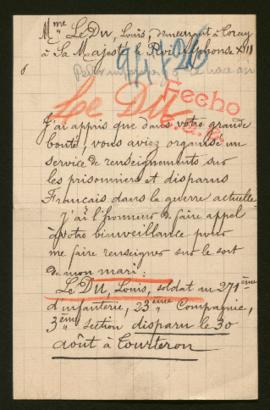 Mme Le Du, Louis, demeurant à Coray
à Sa Majesté le Roi Alphonse XIII
94726
Le Du
Fecho
J'ai appris que dans votre grande
bonté, vous aviez organisé un
service de renseignements sur
les prisonniers et disparus
Français dans la guerre actuelle
J'ai l'honneur de faire appel
à votre bienveillance pour
me faire renseigner sur le sort
de mon mari :
Le Du, Louis, soldat au 271ème
d'infanterie, 23ème Compagnie,
3ème section disparu le 30
août à Tourteron